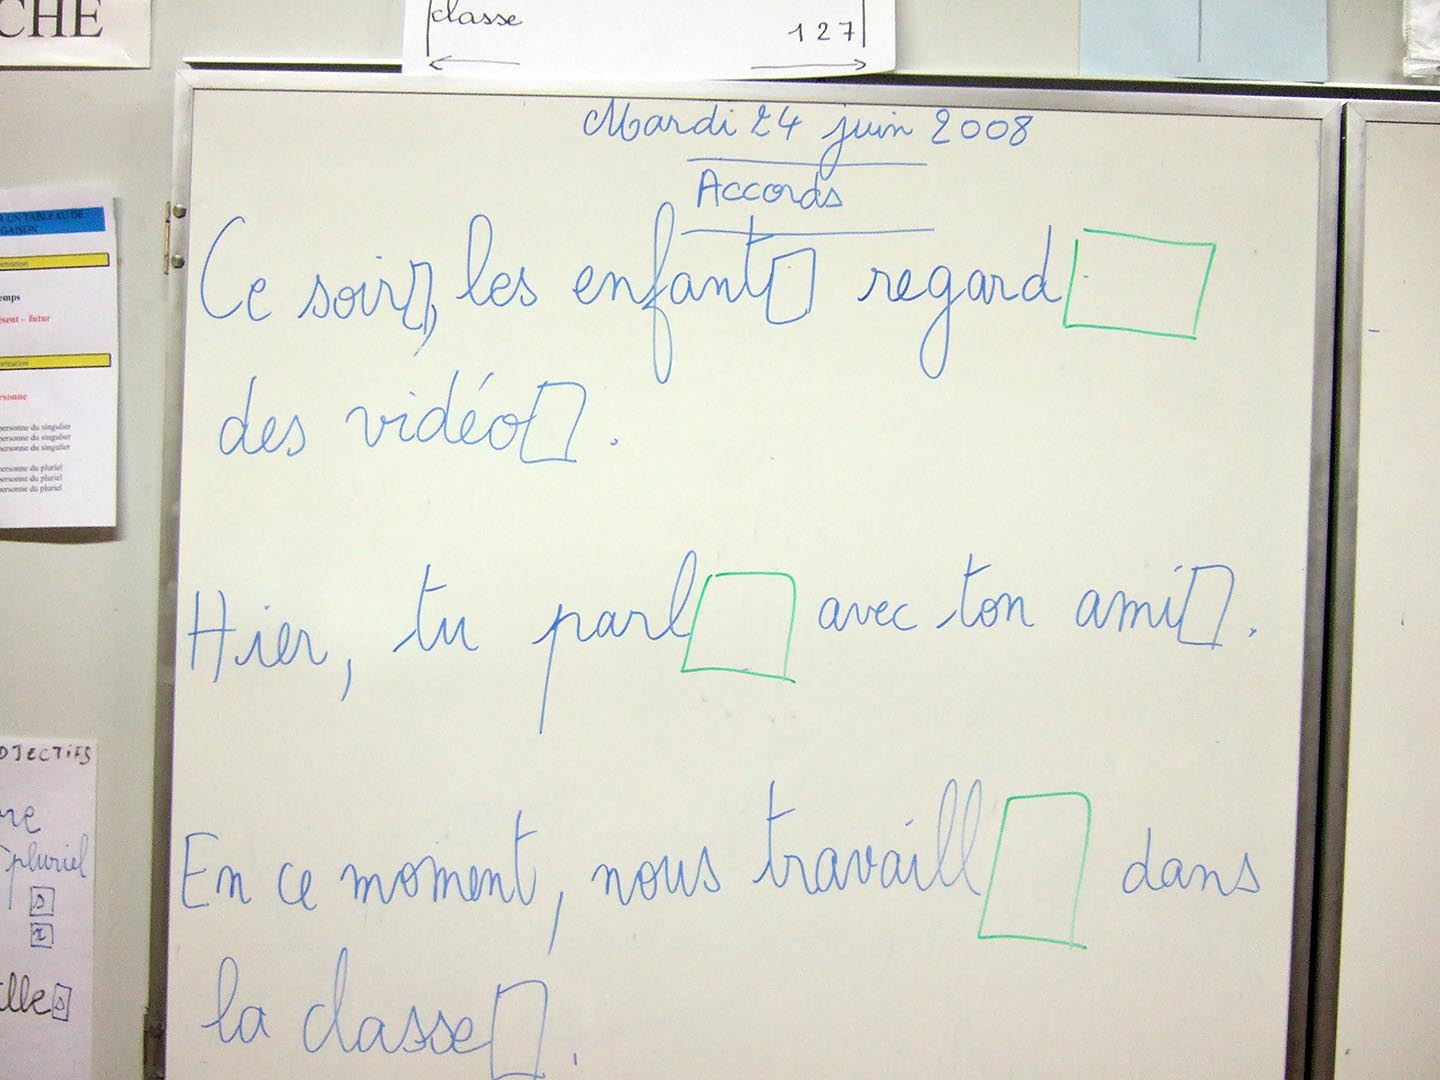 CHE
classe
1 2 7
Mardi 24 juin 2008
Accords
Ce soir, les enfant regard
des vidéo .
Hier, tu parl avec ton ami .
En ce moment, nous travaill dans
la classe .
UN TABLEAU DE
temps
présent – futur
personne
personne du singulier
personne du singulier
personne du singulier
personne du pluriel
personne du pluriel
personne du pluriel
pluriel
s
x